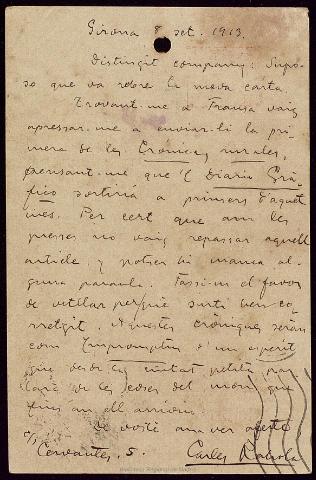 Girona 8 set. 1913.
Distingit company: Supo-
so que va rebre la meva carta.
Trovant-me a França vaig
apressar-me a enviar-li la pri-
mera de les Cròniques rurales,
pensant-me que 'l Diario Grá-
fico sortiria a primers d'aquet
mes. Per cert que am les
presses no vaig repassar aquell
article y potser hi manca al-
guna paraula. Fassi-m el favor
de vetllar perque surti ben co-
rretgit. Aquestes cròniques seràn
com Impromptus d'un esperit
que desde sa ciutat petita par-
larà de les coses del mon que
fins an ell arrivin.
De vostè am ver afecte
Cervantes, 5. Carles Rahola